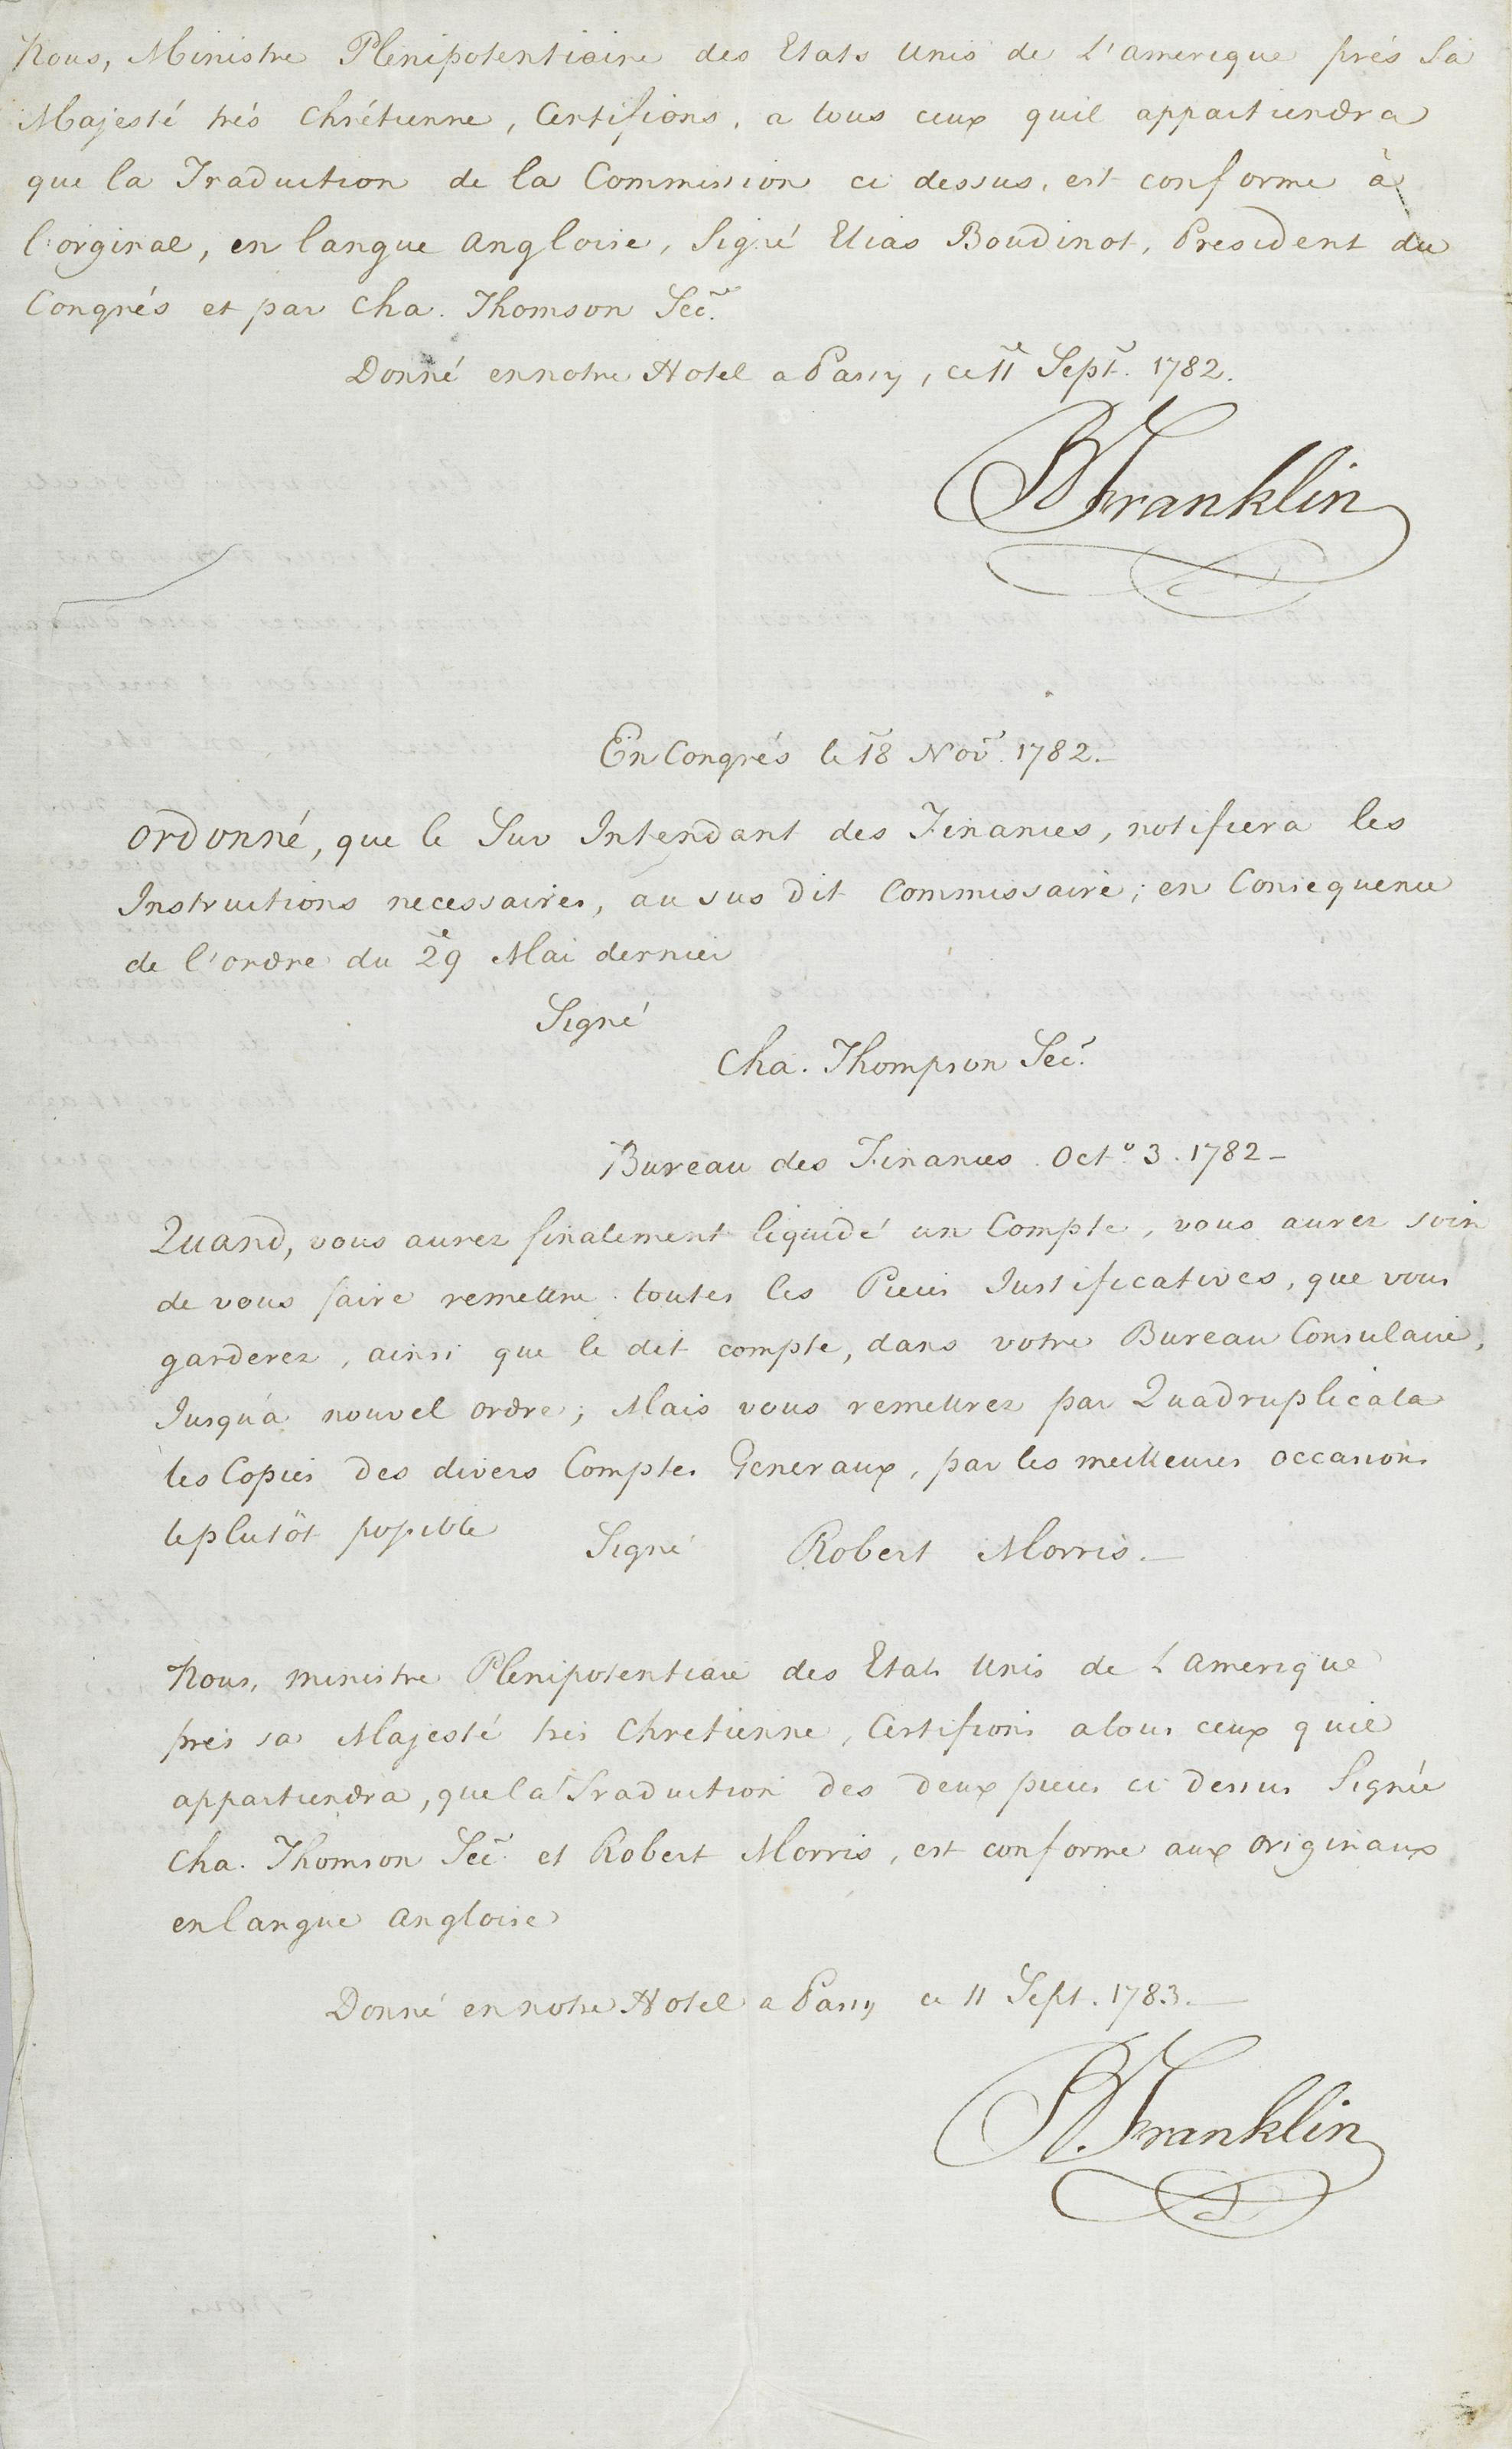 Nous, Ministre Plenipotentiaire des Etats Unis de L'amerique prés Sa
Majesté trés Chrétienne, Certifions, a tous ceux quil appartiendra
que la Traduction de la Commission ci dessus, est conforme à
l'orginal, en langue angloise, Signé Elias Boudinot, President du
Congrés et par Cha. Thomson Sec.
Donné en notre Hotel a Passy, ce 11 Sept. 1782.
B Franklin
En Congrés le 18 Nov. 1782.
Ordonné, que le Sur Intendant des Finances, notifiera les
Instructions necessaires, au sus dit Commissaire; en Consequence
de l'ordre du 29 Mai dernier
Signé
Cha. Thompson Sec.
Bureau des Finances. Octo. 3. 1782 -
Quand, vous aurez finalement liquidé un Compte, vous aurez soin
de vous faire remettre toutes les Pieces Justificatives, que vous
garderez, ainsi que le dit compte, dans votre Bureau Consulaire,
Jusqu'a nouvel ordre; Mais vous remettrez par Quadruplicata
les Copies des divers Comptes Generaux, par les meilleures occasions
le plutôt possible Signé Robert Morris.
Nous, ministre Plenipotentiaire des Etats Unis de L'amerique
pres sa Majesté tres Chretienne, Certifions a tous ceux quil
appartiendra, que la Traduction des deux pieces ci dessus Signée
Cha. Thomson Sec. et Robert Morris, est conforme aux originaux
en langue angloise
Donné en notre Hotel a Passy ce 11 Sept. 1783.
B. Franklin